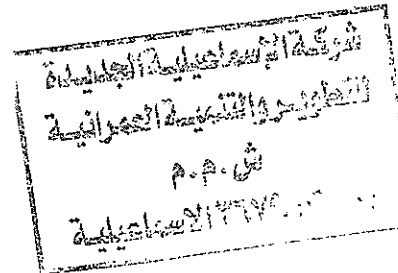 شركة الإسماعيلية الجديدة
للتطوير والتنمية العمرانية
ش.م.م
الاسماعيلية